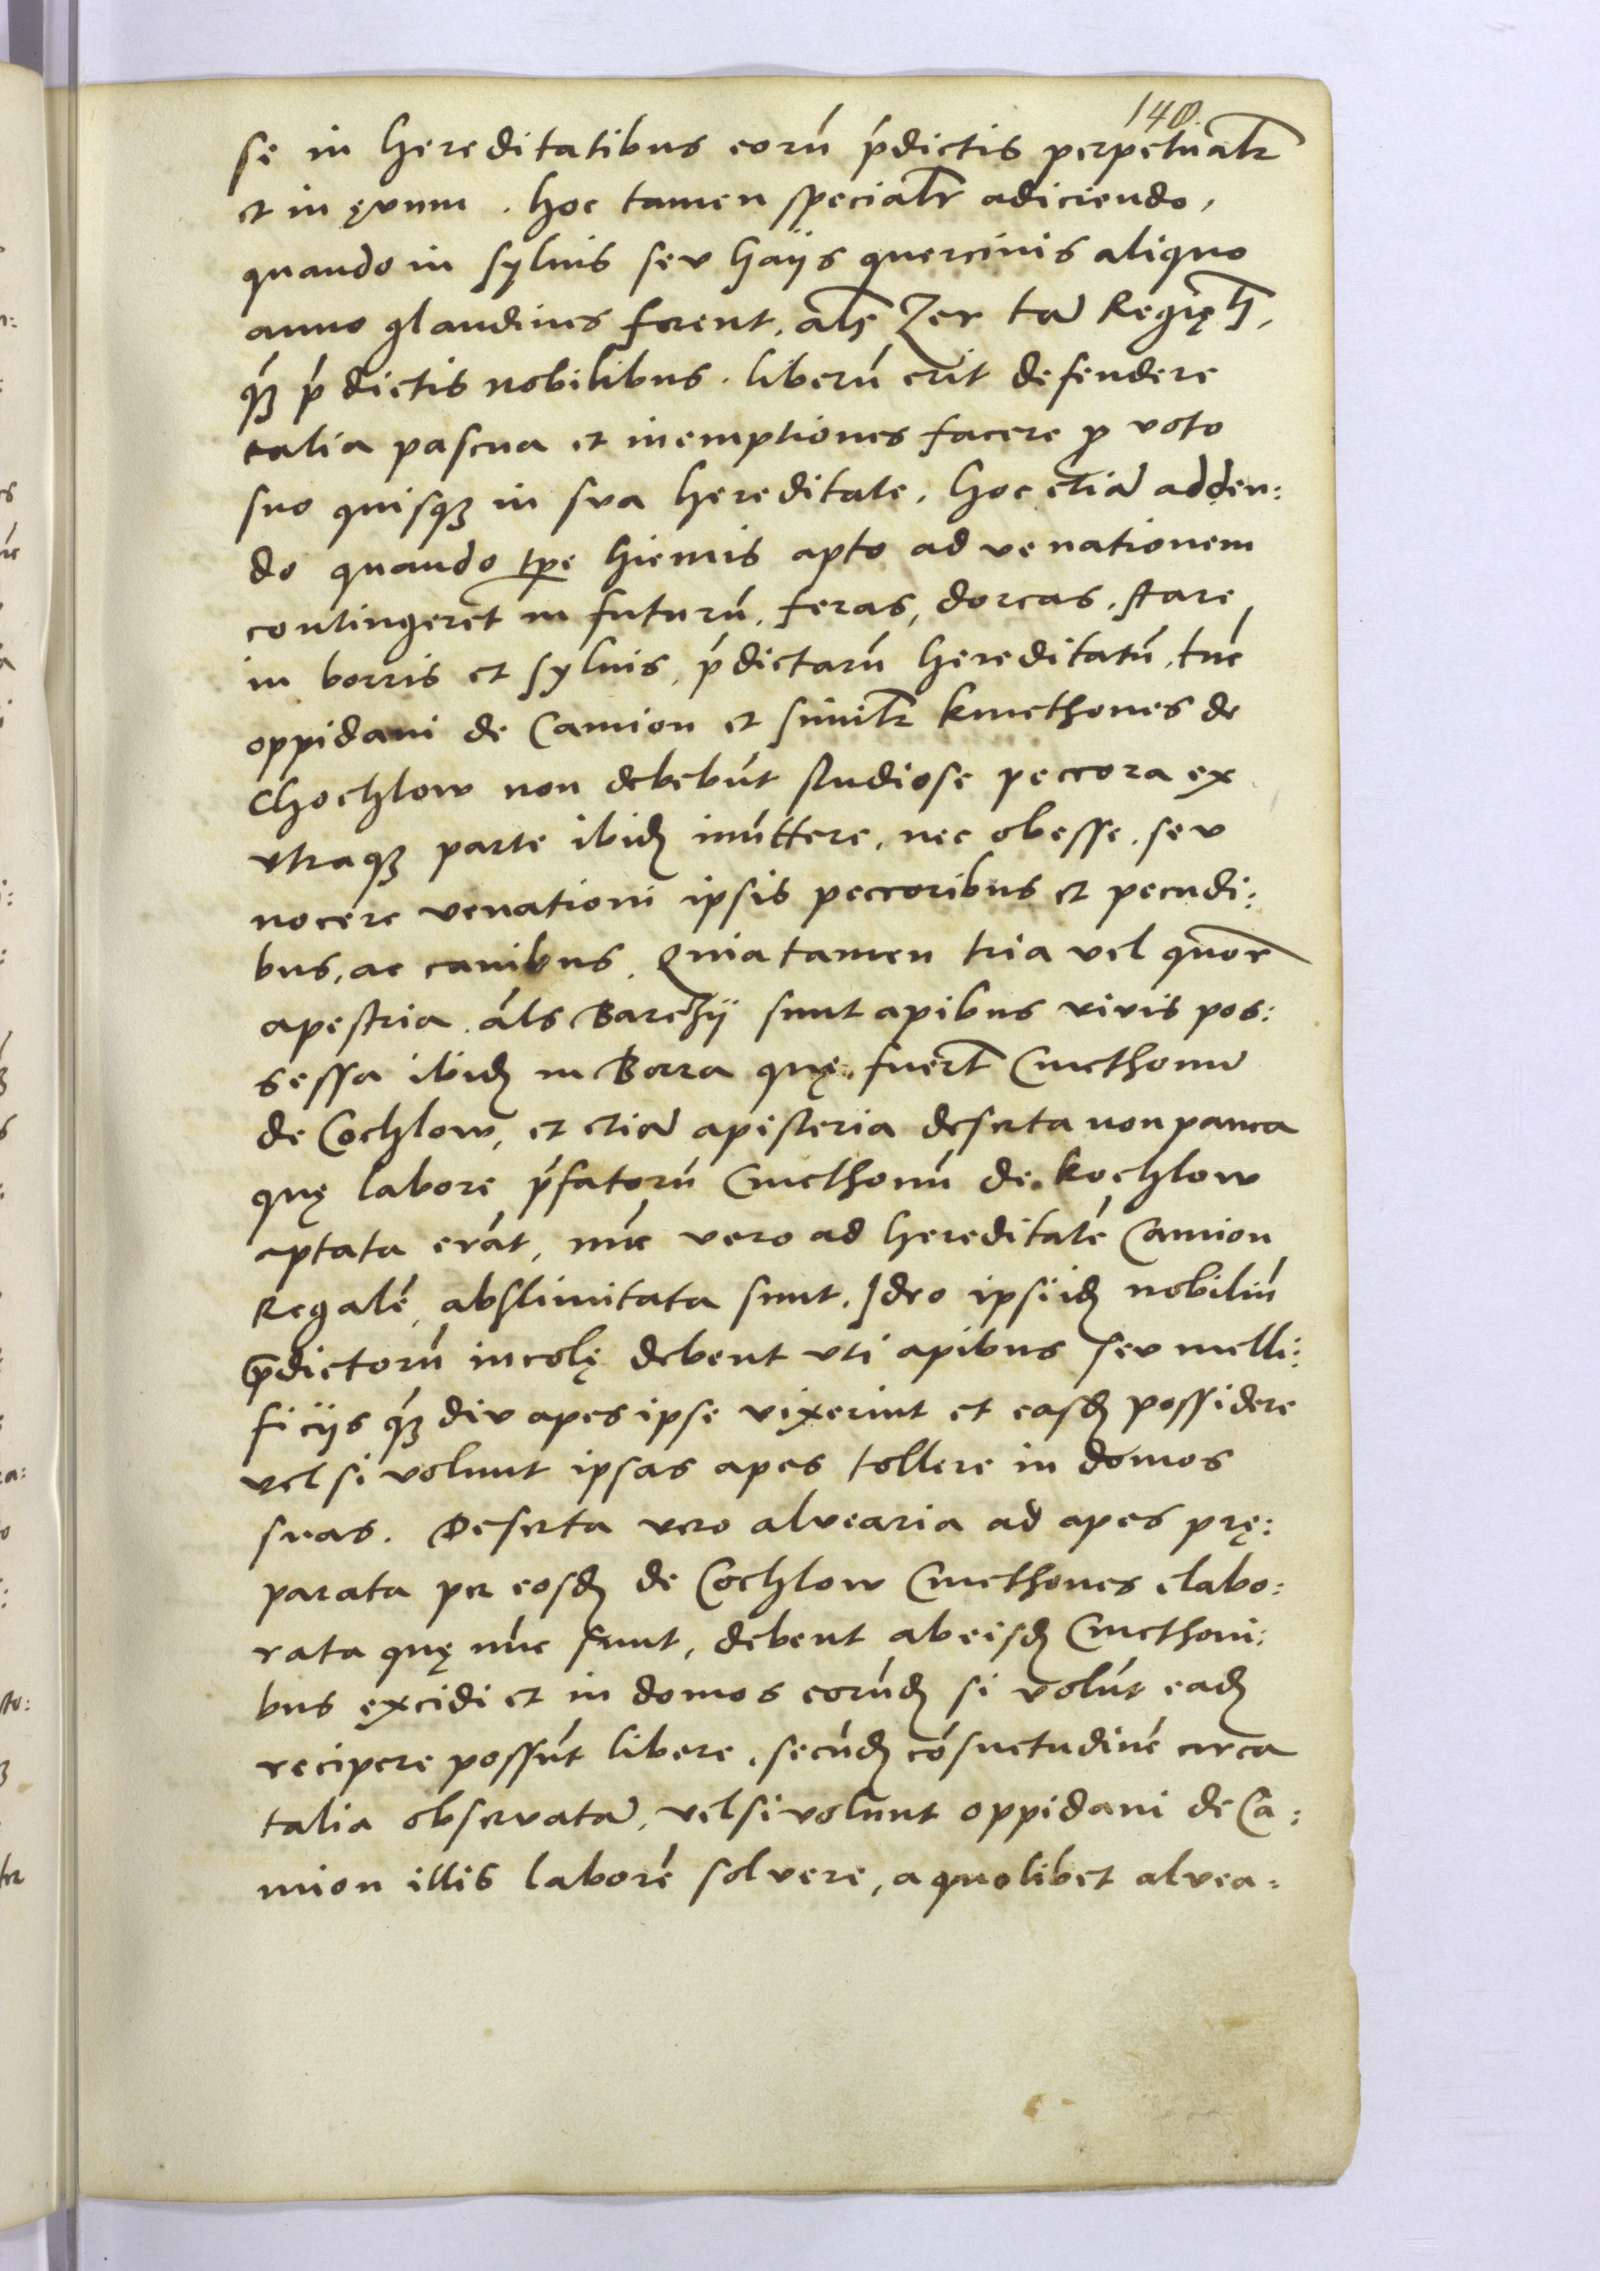 140.
se in hereditatibus eorū p̄dictis perpetualr̄
et in ęvum. hoc tamen specialr̄ adiciendo,
quando in syluis seu haÿs quercinis aliquo
anno glandines ferent, als Zer tā Regię
q̄ȝ p̄dictis nobilibus. liberū erit defendere
talia pascua et inemptiones facere ꝓ voto
suo quisqȝ in sua hereditate. hoc etiā adden:
do quando tp̄e hiemis apto ad venationem
contingeret in futurū, feras, dorcas, stare
in borris et syluis, p̄dictarū hereditatū, tūc
oppidani de Camion et similr̄ kmethones de
Chochlow non debebūt studiose peccora ex
utraqȝ parte ibidȝ imittere, nec obesse, seu
nocere venationi ipsis peccoribus et pecudi:
bus, ac canibus. Quia tamen tria vel quor̄
apestria, āls Barchÿ sunt apibus vivis pos:
sessa ibidȝ in Borra quę fuert̄ Cmethonū
de Cochlow, et etiā apisteria deserta non pauca
quę labore p̄fatorū Cmethonū de kochlow
aptata erāt, nūc vero ad hereditatē Camion
Regalē, abslimitata sunt. Ideo ipsiidȝ nobiliū
p̄dictorū incolę debent uti apibus seu melli:
ficijs q̄ȝ diu apes ipse vixerint et easdȝ possidere
vel si volunt ipsas apes tollere in domos
suas. Deserta vero alvearia ad apes prę:
parata per eosdȝ de Cochlow Cmethones elabo:
rata quę nūc sunt, debent ab eisdȝ Cmethoni:
bus excidi et in domos eorūdȝ si volūt eadȝ
recipere possūt libere, secūdȝ cōsuetudinē circa
talia observatā, vel si volunt oppidani de Ca:
mion illis laborē solvere, a quolibet alvea: